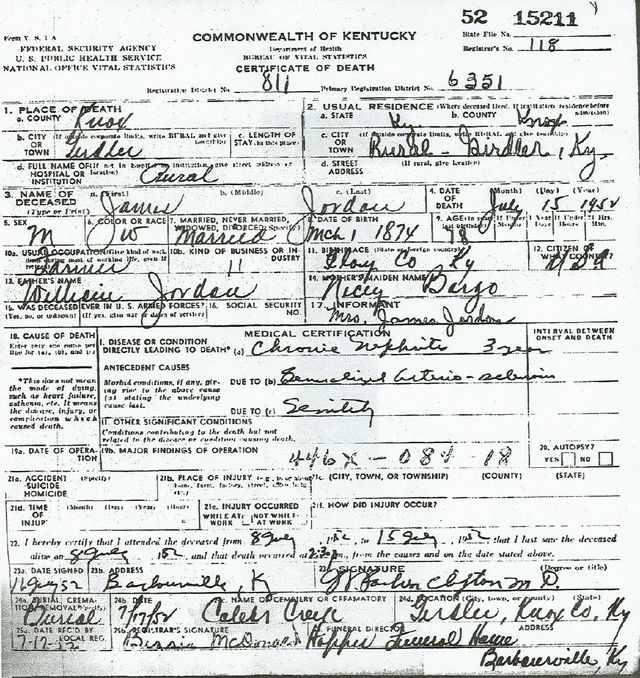 52 15211
Form V. S. 1 A
COMMONWEALTH OF KENTUCKY
State File No.
FEDERAL SECURITY AGENCY
Department of Health
Registrar's No. 118
U. S. PUBLIC HEALTH SERVICE
BUREAU OF VITAL STATISTICS
NATIONAL OFFICE VITAL STATISTICS
CERTIFICATE OF DEATH
Registration District No. 811 Primary Registration District No. 6351
1. PLACE OF DEATH
2. USUAL RESIDENCE (Where deceased lived. If institution: residence before admission)
a. COUNTY Knox
a. STATE Ky b. COUNTY Knox
b. CITY OR TOWN Girdler
c. LENGTH OF STAY (in this place)
c. CITY OR TOWN Rural - Girdler, Ky.
d. FULL NAME OF HOSPITAL OR INSTITUTION Rural
d. STREET ADDRESS (If rural, give location)
3. NAME OF DECEASED (Type or Print)
a. (First) James b. (Middle) c. (Last) Jordan
4. DATE OF DEATH (Month) (Day) (Year) July 15 1952
5. SEX M
6. COLOR OR RACE W
7. MARRIED, NEVER MARRIED, WIDOWED, DIVORCED (Specify) Married
8. DATE OF BIRTH Mch 1 1874
9. AGE 78
10a. USUAL OCCUPATION Farmer
10b. KIND OF BUSINESS OR INDUSTRY 11
11. BIRTHPLACE (State or foreign country) Clay Co Ky
12. CITIZEN OF WHAT COUNTRY? USA
13. FATHER'S NAME William Jordan
14. MOTHER'S MAIDEN NAME Nicey Bargo
15. WAS DECEASED EVER IN U.S. ARMED FORCES?
(Yes, no, or unknown) (If yes, give war or dates of service)
16. SOCIAL SECURITY NO.
17. INFORMANT Mrs. James Jordan
18. CAUSE OF DEATH
Enter only one cause per line for (a), (b), and (c)
MEDICAL CERTIFICATION
INTERVAL BETWEEN ONSET AND DEATH
I. DISEASE OR CONDITION DIRECTLY LEADING TO DEATH* (a) Chronic Nephritis 3 years
*This does not mean the mode of dying, such as heart failure, asthenia, etc. It means the disease, injury, or complication which caused death.
ANTECEDENT CAUSES
Morbid conditions, if any, giving rise to the above cause (a) stating the underlying cause last.
DUE TO (b) Generalized Arterio-sclerosis
DUE TO (c) Senility
II. OTHER SIGNIFICANT CONDITIONS
Conditions contributing to the death but not related to the disease or condition causing death.
19a. DATE OF OPERATION
19b. MAJOR FINDINGS OF OPERATION
446X - 084 - 18
20. AUTOPSY?
YES NO
21a. ACCIDENT SUICIDE HOMICIDE
21b. PLACE OF INJURY
21c. (CITY, TOWN, OR TOWNSHIP) (COUNTY) (STATE)
21d. TIME OF INJURY (Month) (Day) (Year) (Hour)
21e. INJURY OCCURRED
WHILE AT WORK NOT WHILE AT WORK
21f. HOW DID INJURY OCCUR?
22. I hereby certify that I attended the deceased from 8 July, 1952, to 15 July, 1952 that I last saw the deceased
alive on 8 July 1952, and that death occurred at m., from the causes and on the date stated above.
23a. DATE SIGNED 23b. ADDRESS
23c. SIGNATURE (Degree or title)
16 July 52 Barbourville, K Clifton M.D.
24a. BURIAL, CREMATION, REMOVAL Burial
24b. DATE 7/17/52
24c. NAME OF CEMETERY OR CREMATORY Calebs Creek
24d. LOCATION (City, town, or county) (State) Girdler, Knox Co, Ky
25a. DATE REC'D BY LOCAL REG. 7-17-52
25b. REGISTRAR'S SIGNATURE Bessie McDonald
FUNERAL DIRECTOR Hopper Funeral Home
ADDRESS
Barbourville, Ky